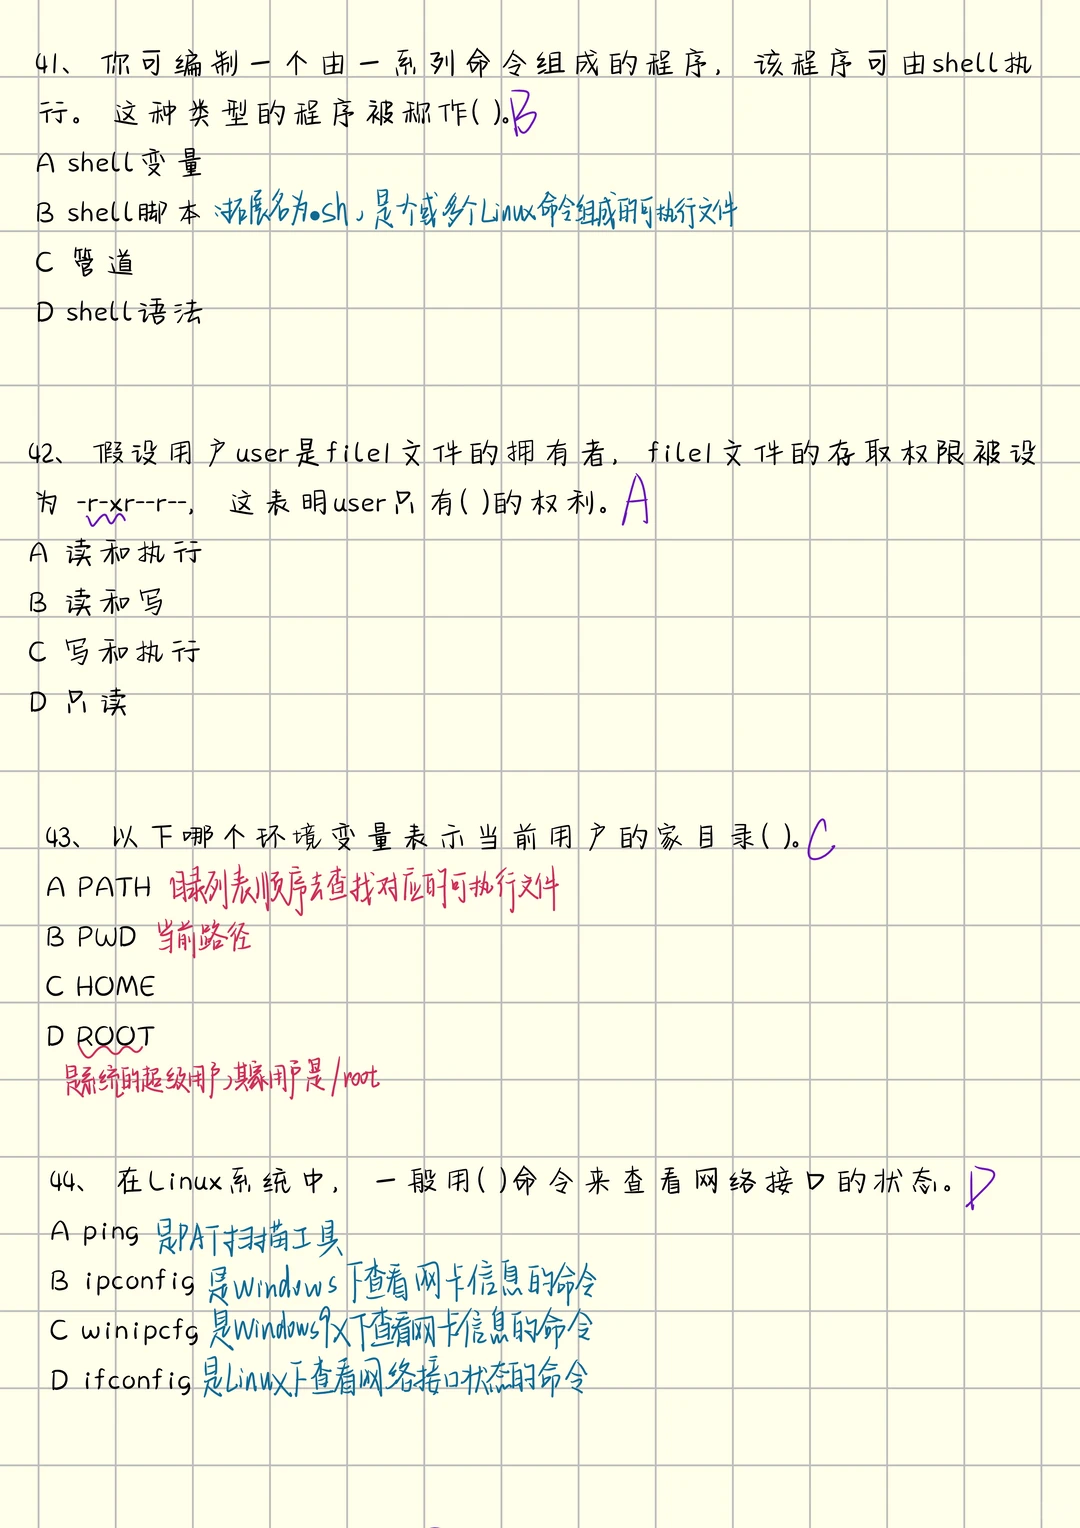 41、你可编制一个由一系列命令组成的程序，该程序可由shell执
行。这种类型的程序被称作( )。B
A shell变量
B shell脚本 拓展名为.sh，是个或多个Linux命令组成的可执行文件
C 管道
D shell语法
42、假设用户user是file1文件的拥有者，file1文件的存取权限被设
为 -r-xr--r--，这表明user只有( )的权利。A
A 读和执行
B 读和写
C 写和执行
D 只读
43、以下哪个环境变量表示当前用户的家目录( )。C
A PATH 目录列表顺序去查找对应的可执行文件
B PWD 当前路径
C HOME
D ROOT
是系统的超级用户，其家用户是/root
44、在Linux系统中，一般用( )命令来查看网络接口的状态。D
A ping 是PAT扫描工具
B ipconfig 是windows下查看网卡信息的命令
C winipcfg 是Windows9X下查看网卡信息的命令
D ifconfig 是Linux下查看网络接口状态的命令